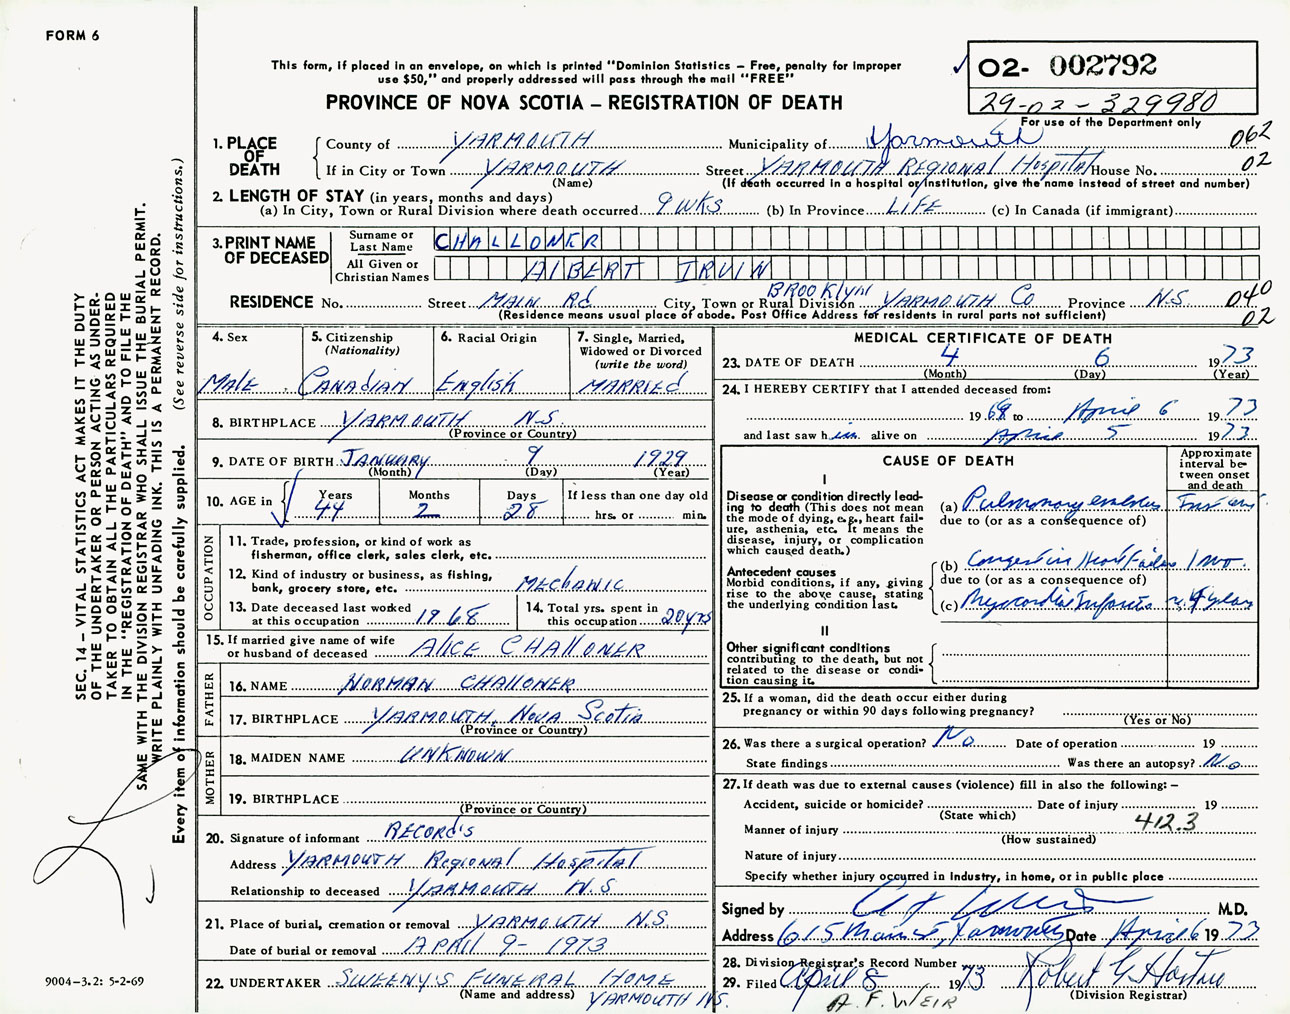 FORM 6
This form, if placed in an envelope, on which is printed "Dominion Statistics – Free, penalty for improper
use $50," and properly addressed will pass through the mail "FREE"
PROVINCE OF NOVA SCOTIA – REGISTRATION OF DEATH
✓ 02- 002792
29-02-329980
For use of the Department only
1. PLACE OF DEATH
County of YARMOUTH Municipality of Yarmouth 062
If in City or Town YARMOUTH Street YARMOUTH REGIONAL Hospital House No. 02
(Name) (If death occurred in a hospital or institution, give the name instead of street and number)
2. LENGTH OF STAY (in years, months and days)
(a) In City, Town or Rural Division where death occurred 9 WKS (b) In Province LIFE (c) In Canada (if immigrant)
3. PRINT NAME OF DECEASED
Surname or Last Name CHALLONER
All Given or Christian Names AlBERT IRVIN
RESIDENCE No. Street MAIN Rd City, Town or Rural Division BROOKlyN YARMOUTH Co Province N.S. 040
(Residence means usual place of abode. Post Office Address for residents in rural parts not sufficient) 02
4. Sex
Male
5. Citizenship
(Nationality)
Canadian
6. Racial Origin
English
7. Single, Married,
Widowed or Divorced
(write the word)
MARRIEd
8. BIRTHPLACE YARMOUTH N.S.
(Province or Country)
9. DATE OF BIRTH JANUARY 9 1929
(Month) (Day) (Year)
10. AGE in Years 44 Months 2 Days 28 If less than one day old
hrs. or min.
OCCUPATION
11. Trade, profession, or kind of work as
fisherman, office clerk, sales clerk, etc.
12. Kind of industry or business, as fishing,
bank, grocery store, etc. MEChANIC
13. Date deceased last worked
at this occupation 1968
14. Total yrs. spent in
this occupation 20 yrs
15. If married give name of wife
or husband of deceased AlICE CHAllONER
FATHER
16. NAME NORMAN CHAllONER
17. BIRTHPLACE YARMOUTH, Nova Scotia
(Province or Country)
MOTHER
18. MAIDEN NAME UNKNOWN
19. BIRTHPLACE
(Province or Country)
20. Signature of informant RECORd's
Address YARMOUTH Regional Hospital
Relationship to deceased YARMOUTH N.S
21. Place of burial, cremation or removal YARMOUTH N.S.
Date of burial or removal APRIL 9- 1973
22. UNDERTAKER SWEENY'S FUNERAL HOME
(Name and address) YARMOUTH N.S.
MEDICAL CERTIFICATE OF DEATH
23. DATE OF DEATH 4 6 1973
(Month) (Day) (Year)
24. I HEREBY CERTIFY that I attended deceased from:
1969 to April 6 1973
and last saw him alive on April 5 1973
CAUSE OF DEATH
Approximate
interval be-
tween onset
and death
I
Disease or condition directly lead-
ing to death (This does not mean
the mode of dying, e.g., heart fail-
ure, asthenia, etc. It means the
disease, injury, or complication
which caused death.)
(a) Pulmonary embolus
due to (or as a consequence of)
Antecedent causes
Morbid conditions, if any, giving
rise to the above cause, stating
the underlying condition last.
(b) Congestive Heart Failure 1 mo.
due to (or as a consequence of)
(c) Myocardial Infarcts 4 years
II
Other significant conditions
contributing to the death, but not
related to the disease or condi-
tion causing it.
25. If a woman, did the death occur either during
pregnancy or within 90 days following pregnancy?
(Yes or No)
26. Was there a surgical operation? No Date of operation 19
State findings Was there an autopsy? No
27. If death was due to external causes (violence) fill in also the following: –
Accident, suicide or homicide? Date of injury 19
(State which)
412.3
Manner of injury
(How sustained)
Nature of injury
Specify whether injury occurred in industry, in home, or in public place
Signed by M.D.
Address 615 Main St, Yarmouth Date April 6 1973
28. Division Registrar's Record Number
29. Filed April 8 1973 Robert G
(Division Registrar)
A. F. WEIR
SEC. 14 – VITAL STATISTICS ACT MAKES IT THE DUTY
OF THE UNDERTAKER OR PERSON ACTING AS UNDER-
TAKER TO OBTAIN ALL THE PARTICULARS REQUIRED
IN THE "REGISTRATION OF DEATH" AND TO FILE THE
SAME WITH THE DIVISION REGISTRAR WHO SHALL ISSUE THE BURIAL PERMIT.
WRITE PLAINLY WITH UNFADING INK. THIS IS A PERMANENT RECORD.
Every item of information should be carefully supplied. (See reverse side for instructions.)
9004–3.2: 5-2-69